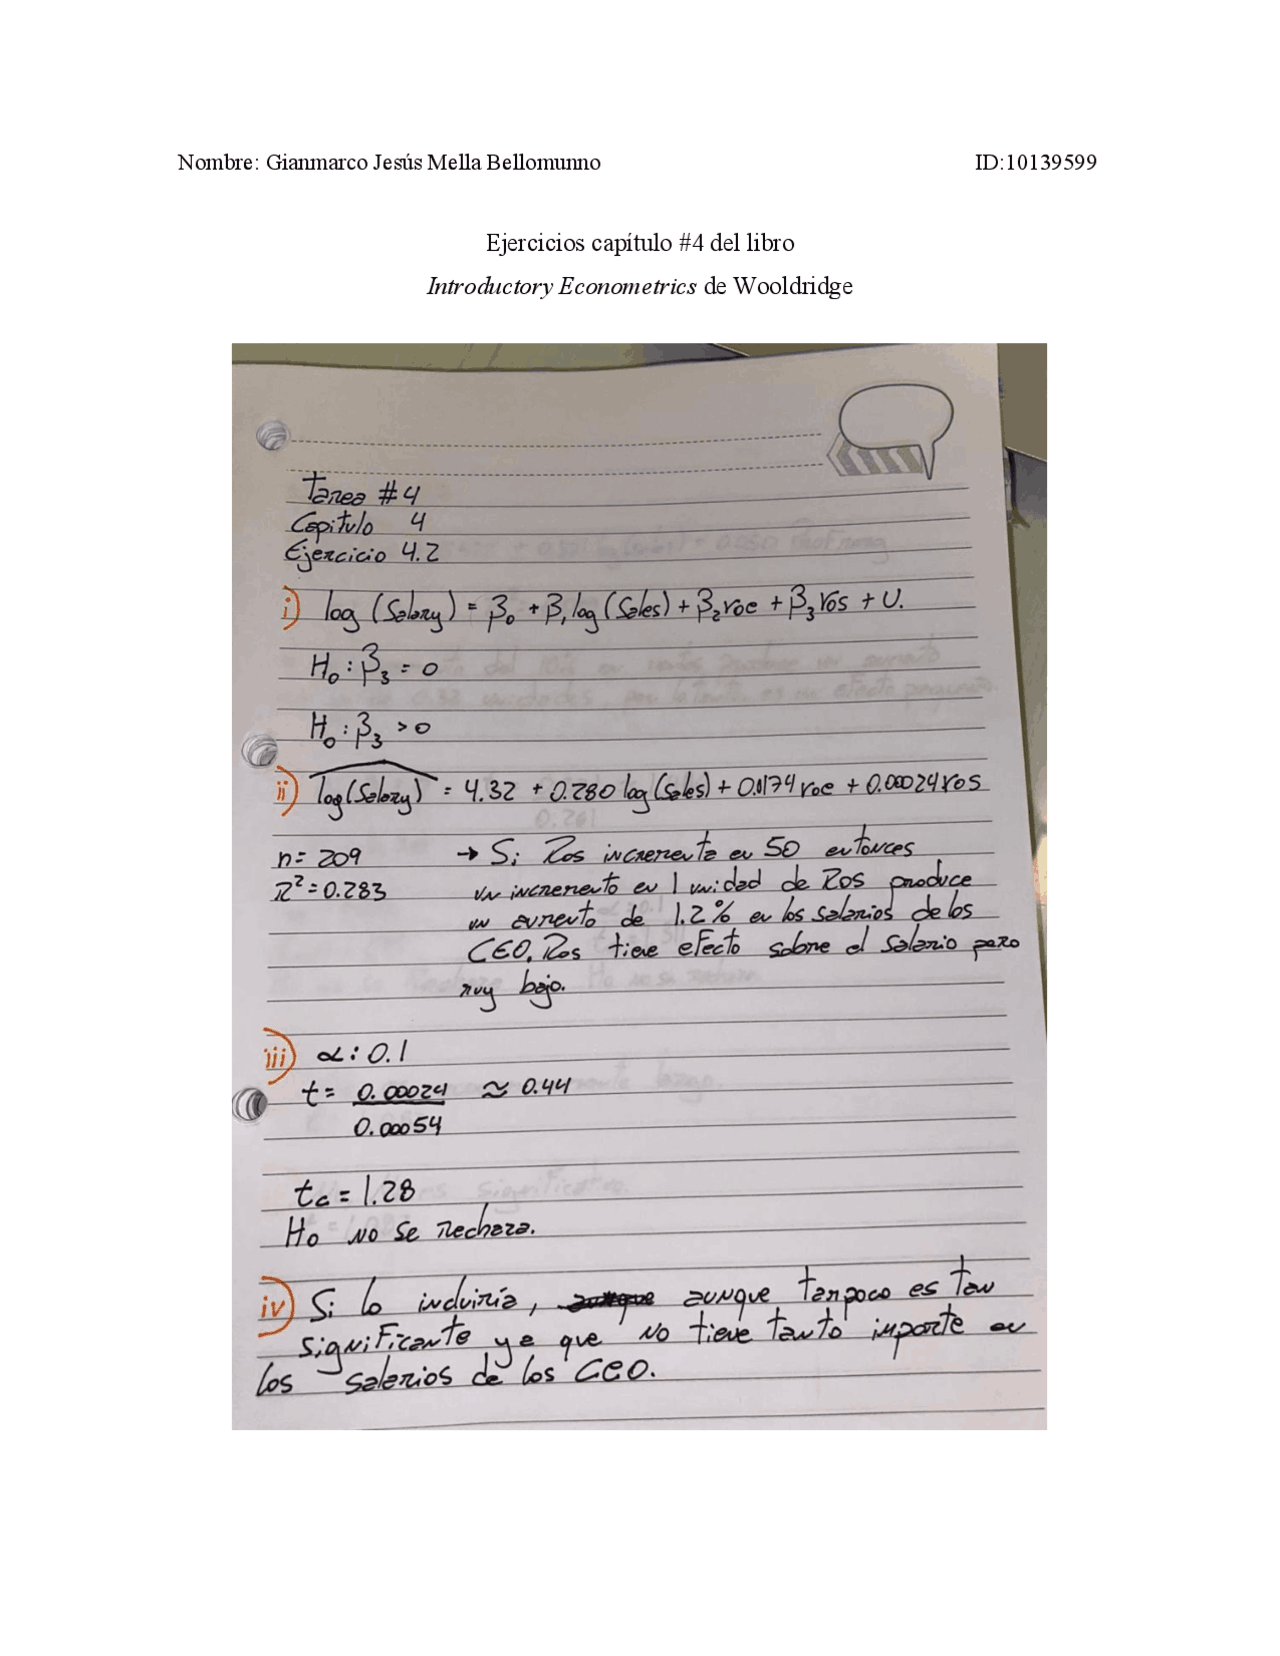 Nombre: Gianmarco Jesús Mella Bellomunno ID:10139599
Ejercicios capítulo #4 del libro
Introductory Econometrics de Wooldridge
Tarea #4
Capitulo 4
Ejercicio 4.2
i) log (Salary) = β₀ + β₁ log (Sales) + β₂ roe + β₃ ros + U.
H₀ : β₃ = 0
H₀ : β₃ > 0
ii) \widehat{log(Salary)} = 4.32 + 0.280 log (Sales) + 0.0174 roe + 0.00024 ros
n = 209 → Si Ros incrementa en 50 entonces
R² = 0.283 un incremento en 1 unidad de Ros produce
un aumento de 1.2% en los salarios de los
CEO. Ros tiene efecto sobre el salario pero
muy bajo.
iii) α : 0.1
t = 0.00024 ≈ 0.44
0.00054
tc = 1.28
H₀ no se rechaza.
iv) Si lo incluiría, aunque tampoco es tan
significante ya que no tiene tanto importe en
los salarios de los CEO.